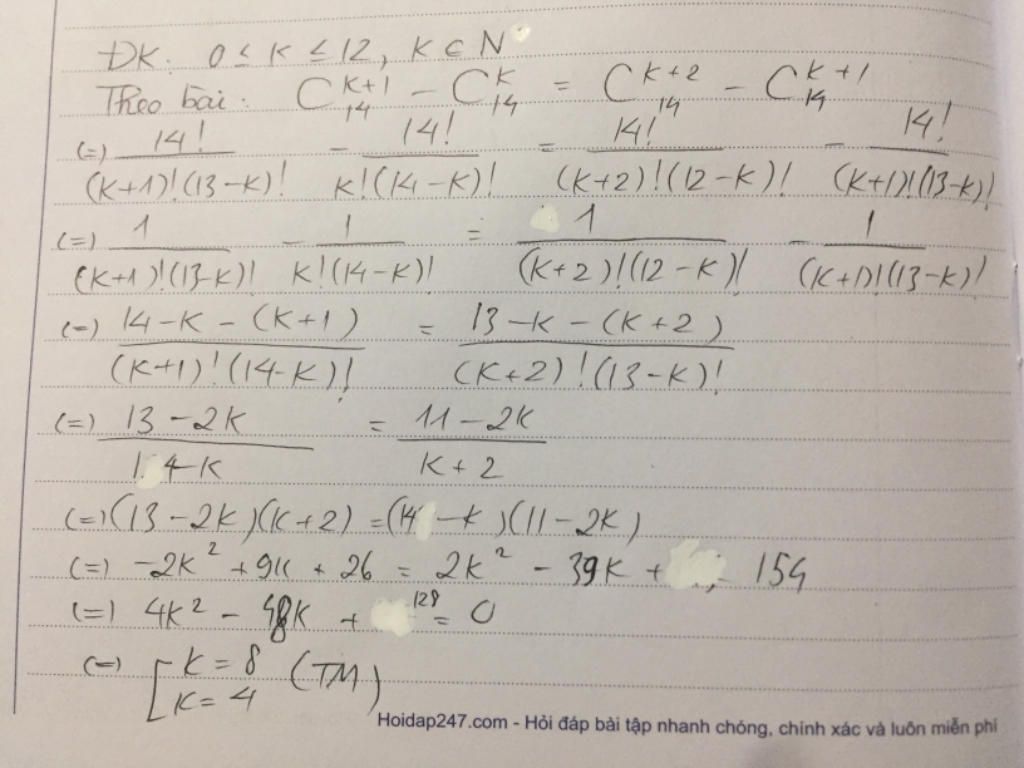 ĐK: 0 ≤ K ≤ 12, K ∈ N
Theo bài: C₁₄ᴷ⁺¹ - C₁₄ᴷ = C₁₄ᴷ⁺² - C₁₄ᴷ⁺¹
(=) 14!/((K+1)!(13-K)!) - 14!/(K!(14-K)!) = 14!/((K+2)!(12-K)!) - 14!/((K+1)!(13-K)!)
(=) 1/((K+1)!(13-K)!) - 1/(K!(14-K)!) = 1/((K+2)!(12-K)!) - 1/((K+1)!(13-K)!)
(=) (14-K-(K+1))/((K+1)!(14-K)!) = (13-K-(K+2))/((K+2)!(13-K)!)
(=) (13-2K)/(14-K) = (11-2K)/(K+2)
(=) (13-2K)(K+2) = (14-K)(11-2K)
(=) -2K² + 9K + 26 = 2K² - 39K + 154
(=) 4K² - 48K + 128 = 0
(=) [ K = 8
K = 4 (TM)
Hoidap247.com - Hỏi đáp bài tập nhanh chóng, chính xác và luôn miễn phí